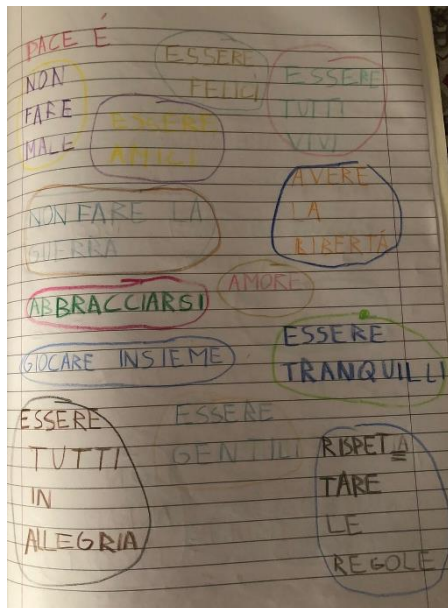 PACE É
NON
FARE
MALE
ESSERE
FELICI
ESSERE
TUTTI
VIVI
ESSERE
AMICI
NON FARE LA
GUERRA
AVERE
LA
LIBERTÁ
AMORE
ABBRACCIARSI
GIOCARE INSIEME
ESSERE
TRANQUILLI
ESSERE
TUTTI
IN
ALLEGRIA
ESSERE
GENTILI
RISPETTA
TARE
LE
REGOLE